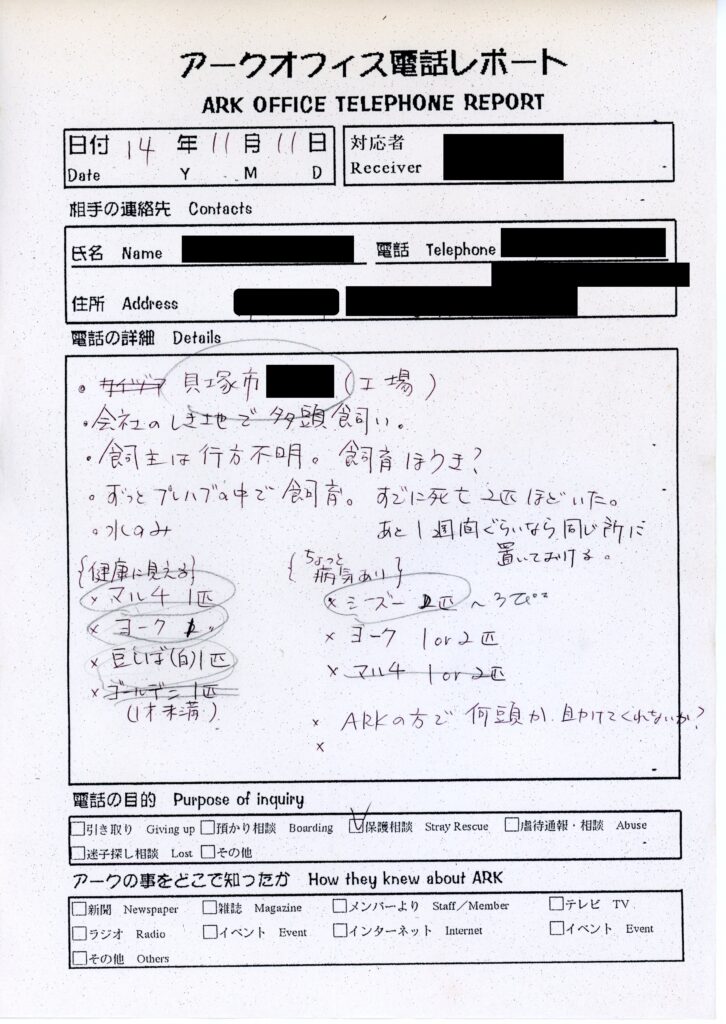 アークオフィス電話レポート
ARK OFFICE TELEPHONE REPORT
日付 14 年 11 月 11 日
Date Y M D
対応者
Receiver
相手の連絡先 Contacts
氏名 Name 電話 Telephone
住所 Address
電話の詳細 Details
・ 貝塚市 (工場)
・会社のしき地で 多頭飼い。
・飼主は行方不明。 飼育ほうき?
・ずっとプレハブの中で飼育。 すでに死亡 2匹ほどいた。
・水のみ
あと1週間ぐらいなら、同じ所に
置いておける。
{健康に見える}
× マル4 1匹
× ヨーク 1 〃
× 豆しば(白)1匹
× ゴールデン 1匹
(1才未満)
{ちょっと
病気あり}
× シーズー 2匹 ~3才
× ヨーク 1 or 2匹
× マル4 1 or 2匹
× ARKの方で 何頭か 助けてくれないか?
×
電話の目的 Purpose of inquiry
引き取り Giving up 預かり相談 Boarding 保護相談 Stray Rescue 虐待通報・相談 Abuse
迷子探し相談 Lost その他
アークの事をどこで知ったか How they knew about ARK
新聞 Newspaper 雑誌 Magazine メンバーより Staff/Member テレビ TV
ラジオ Radio イベント Event インターネット Internet イベント Event
その他 Others